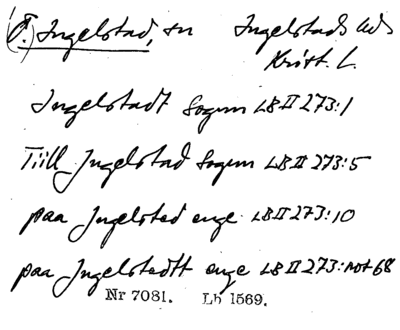 (Ö.) Ingelstad, sn Ingelstads hds
Krist. L.
Ingelstadt Sogenn LB II 273:1
Tiill Ingelstad Sogenn LB II 273:5
paa Ingelsted enge LB II 273:10
paa Ingelstedtt enge LB II 273: not 68
Nr 7081. Lb 1569.